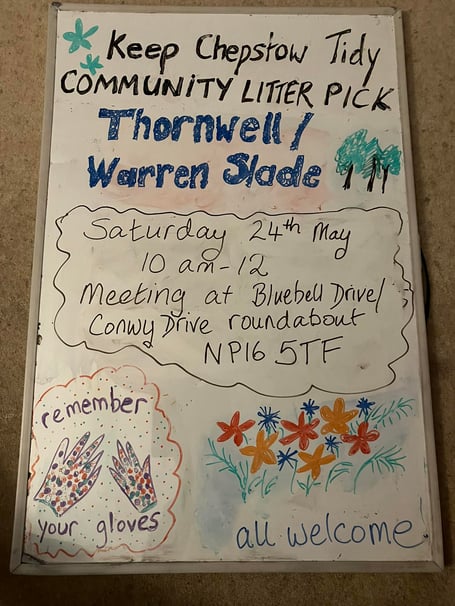 Keep Chepstow Tidy
COMMUNITY LITTER PICK
Thornwell/
Warren Slade
Saturday 24th May
10 am-12
Meeting at Bluebell Drive/
Conwy Drive roundabout
NP16 5TF
remember
your gloves
all welcome